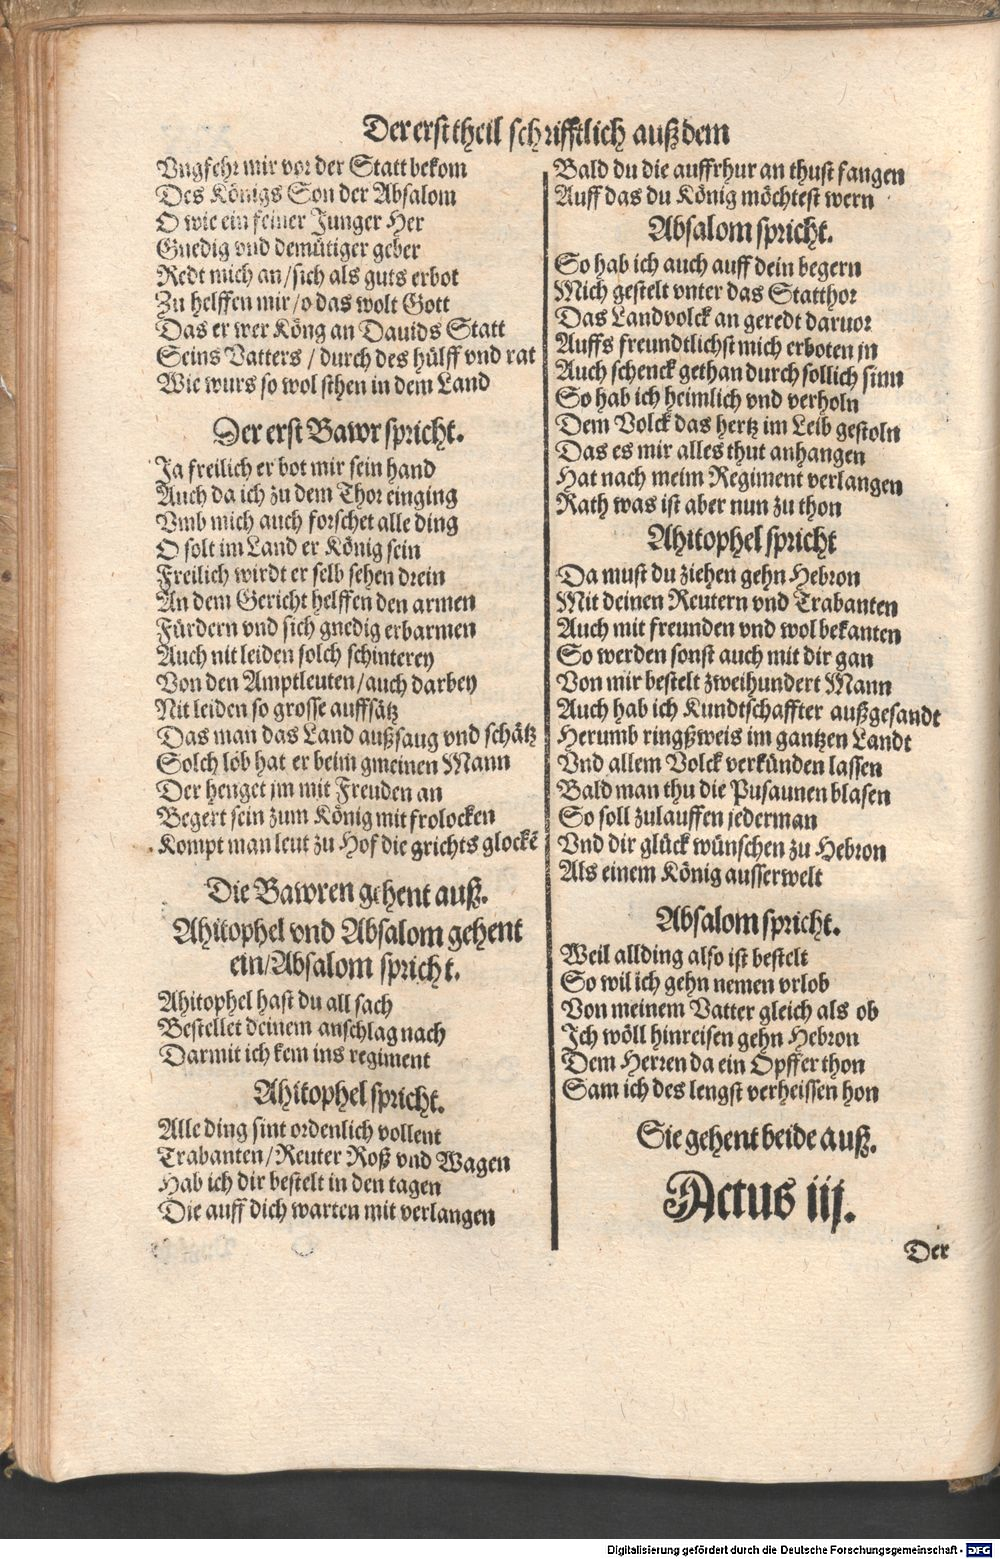 Der erst theil schrifftlich auß dem
Vngfehr mir vor der Statt bekom
Des Königs Son der Absalom
O wie ein feiner Junger Her
Gnedig vnd demütiger geber
Redt mich an/sich als guts erbot
Zu helffen mir/o das wolt Gott
Das er wer Köng an Dauids Statt
Seins Vatters / durch des hülff vnd rat
Wie wurs so wol sthen in dem Land
Der erst Bawr spricht.
Ja freilich er bot mir sein hand
Auch da ich zu dem Thor einging
Vmb mich auch forschet alle ding
O solt im Land er König sein
Freilich wirdt er selb sehen drein
An dem Gericht helffen den armen
Fürdern vnd sich gnedig erbarmen
Auch nit leiden solch schinterey
Von den Amptleuten/auch darbey
Nit leiden so grosse auffsätz
Das man das Land außsaug vnd schätz
Solch löb hat er beim gmeinen Mann
Der henget jm mit Freuden an
Begert sein zum König mit frolocken
Kompt man leut zu Hof die grichts glockē
Die Bawren gehent auß.
Ahitophel vnd Absalom gehent
ein/Absalom spricht.
Ahitophel hast du all sach
Bestellet deinem anschlag nach
Darmit ich kem ins regiment
Ahitophel spricht.
Alle ding sint ordenlich vollent
Trabanten/Reuter Roß vnd Wagen
Hab ich dir bestelt in den tagen
Die auff dich warten mit verlangen
Bald du die auffrhur an thust fangen
Auff das du König möchtest wern
Absalom spricht.
So hab ich auch auff dein begern
Mich gestelt vnter das Statthor
Das Landvolck an geredt daruor
Auffs freundtlichst mich erboten jn
Auch schenck gethan durch sollich sinn
So hab ich heimlich vnd verholn
Dem Volck das hertz im Leib gestoln
Das es mir alles thut anhangen
Hat nach meim Regiment verlangen
Rath was ist aber nun zu thon
Ahitophel spricht
Da must du ziehen gehn Hebron
Mit deinen Reutern vnd Trabanten
Auch mit freunden vnd wol bekanten
So werden sonst auch mit dir gan
Von mir bestelt zweihundert Mann
Auch hab ich Kundtschaffter außgesandt
Herumb ringßweis im gantzen Landt
Vnd allem Volck verkünden lassen
Bald man thu die Pusaunen blasen
So soll zulauffen jederman
Vnd dir glück wünschen zu Hebron
Als einem König ausserwelt
Absalom spricht.
Weil allding also ist bestelt
So wil ich gehn nemen vrlob
Von meinem Vatter gleich als ob
Ich wöll hinreisen gehn Hebron
Dem Herren da ein Opffer thon
Sam ich des lengst verheissen hon
Sie gehent beide auß.
Actus iij.
Der
Digitalisierung gefördert durch die Deutsche Forschungsgemeinschaft - DFG